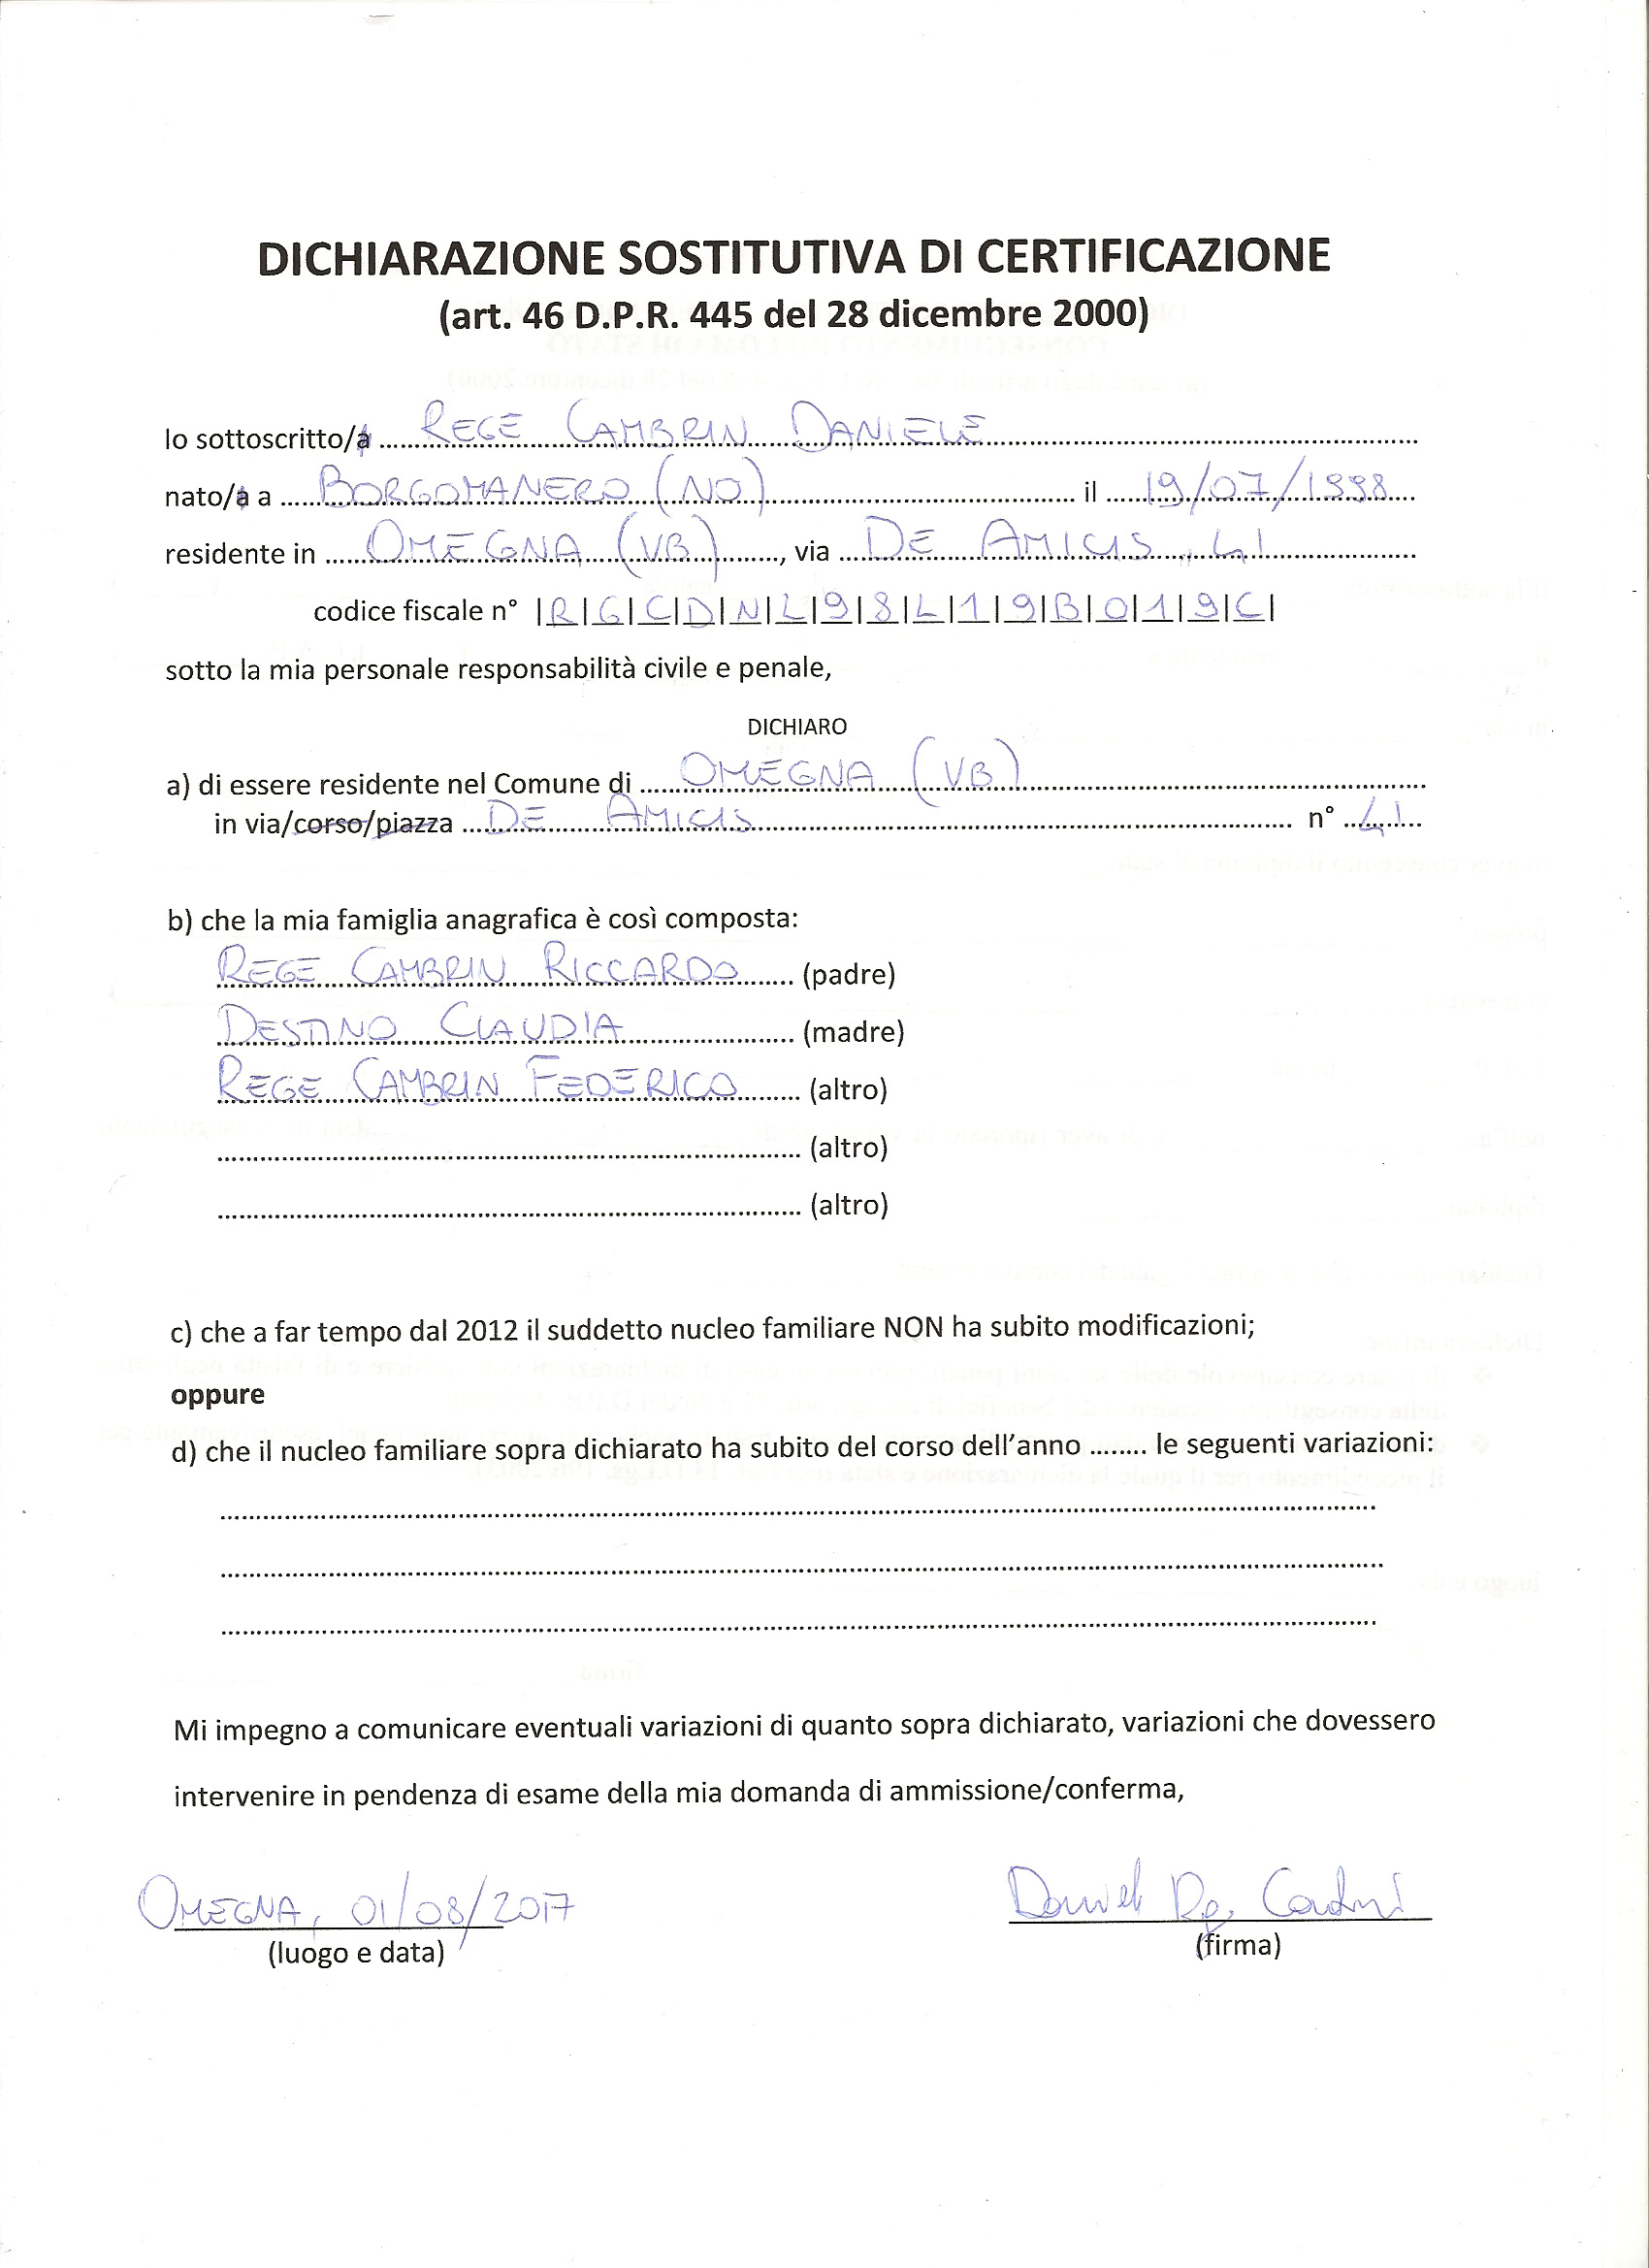 DICHIARAZIONE SOSTITUTIVA DI CERTIFICAZIONE
(art. 46 D.P.R. 445 del 28 dicembre 2000)
Io sottoscritto/a REGE CAMBRIN DANIELE
nato/a a BORGOMANERO (NO) il 19/07/1998
residente in OMEGNA (VB), via DE AMICIS, 41
codice fiscale n° |R|G|C|D|N|L|9|8|L|1|9|B|0|1|9|C|
sotto la mia personale responsabilità civile e penale,
DICHIARO
a) di essere residente nel Comune di OMEGNA (VB)
in via/corso/piazza DE AMICIS n° 41
b) che la mia famiglia anagrafica è così composta:
REGE CAMBRIN RICCARDO (padre)
DESTINO CLAUDIA (madre)
REGE CAMBRIN FEDERICO (altro)
(altro)
(altro)
c) che a far tempo dal 2012 il suddetto nucleo familiare NON ha subito modificazioni;
oppure
d) che il nucleo familiare sopra dichiarato ha subito del corso dell'anno ........ le seguenti variazioni:
Mi impegno a comunicare eventuali variazioni di quanto sopra dichiarato, variazioni che dovessero
intervenire in pendenza di esame della mia domanda di ammissione/conferma,
OMEGNA, 01/08/2017
(luogo e data)
(firma)